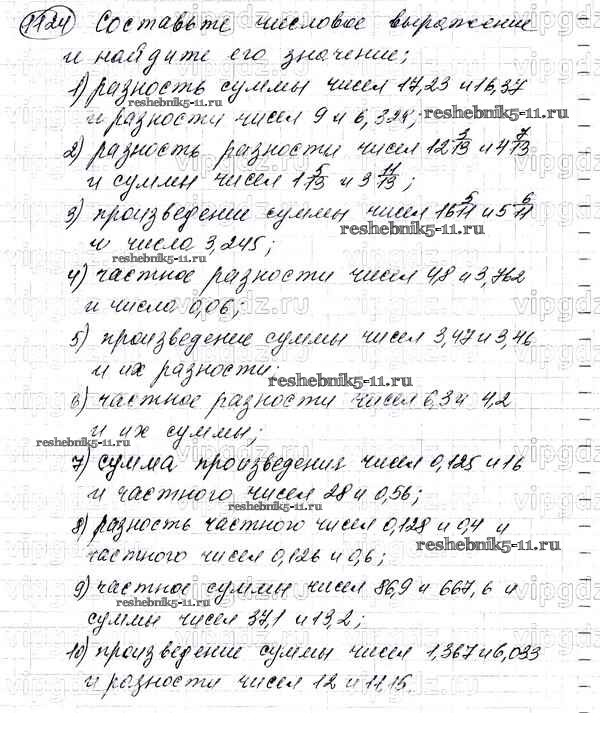 1124 Составьте числовое выражение
и найдите его значение;
1) разность суммы чисел 17,23 и 16,37
и разности чисел 9 и 6,328;
2) разность разности чисел 12 3/13 и 4 7/13
и суммы чисел 1 5/13 и 3 11/13;
3) произведение суммы чисел 16 5/11 и 5 6/11
и числа 3,245;
4) частное разности чисел 48 и 3,762
и числа 0,06;
5) произведение суммы чисел 3,47 и 3,46
и их разности;
6) частное разности чисел 6,3 и 4,2
и их суммы;
7) сумма произведения чисел 0,125 и 16
и частного чисел 28 и 0,56;
8) разность частного чисел 0,128 и 0,4 и
частного чисел 0,126 и 0,6;
9) частное суммы чисел 86,9 и 667,6 и
суммы чисел 37,1 и 13,2;
10) произведение суммы чисел 1,367 и 6,033
и разности чисел 12 и 11,15.
reshebnik5-11.ru
reshebnik5-11.ru
reshebnik5-11.ru
reshebnik5-11.ru
reshebnik5-11.ru
reshebnik5-11.ru
reshebnik5-11.ru
reshebnik5-11.ru
vipgdz.ru